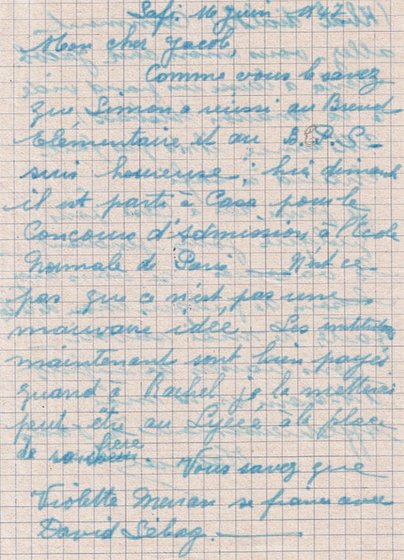 Safi, 16 Juin 1947
Mon cher Jacob,
Comme vous le savez
que Simon a reussi au Brevet
Elémentaire, et au B.E.P.S.
suis heureuse; hier dimanche
il est parti à Casa pour le
Concours d'admission, à l'Ecole
Normale de Paris ___ N'est ce
pas que ce n'est pas une
mauvaise idée. Les instituteurs
maintenant sont bien payés
quand à Rachel je la mettrai
peut-être au Lycée à la place
de son frère.
Vous savez que
Violette se fiance avec
David Sebag. ___